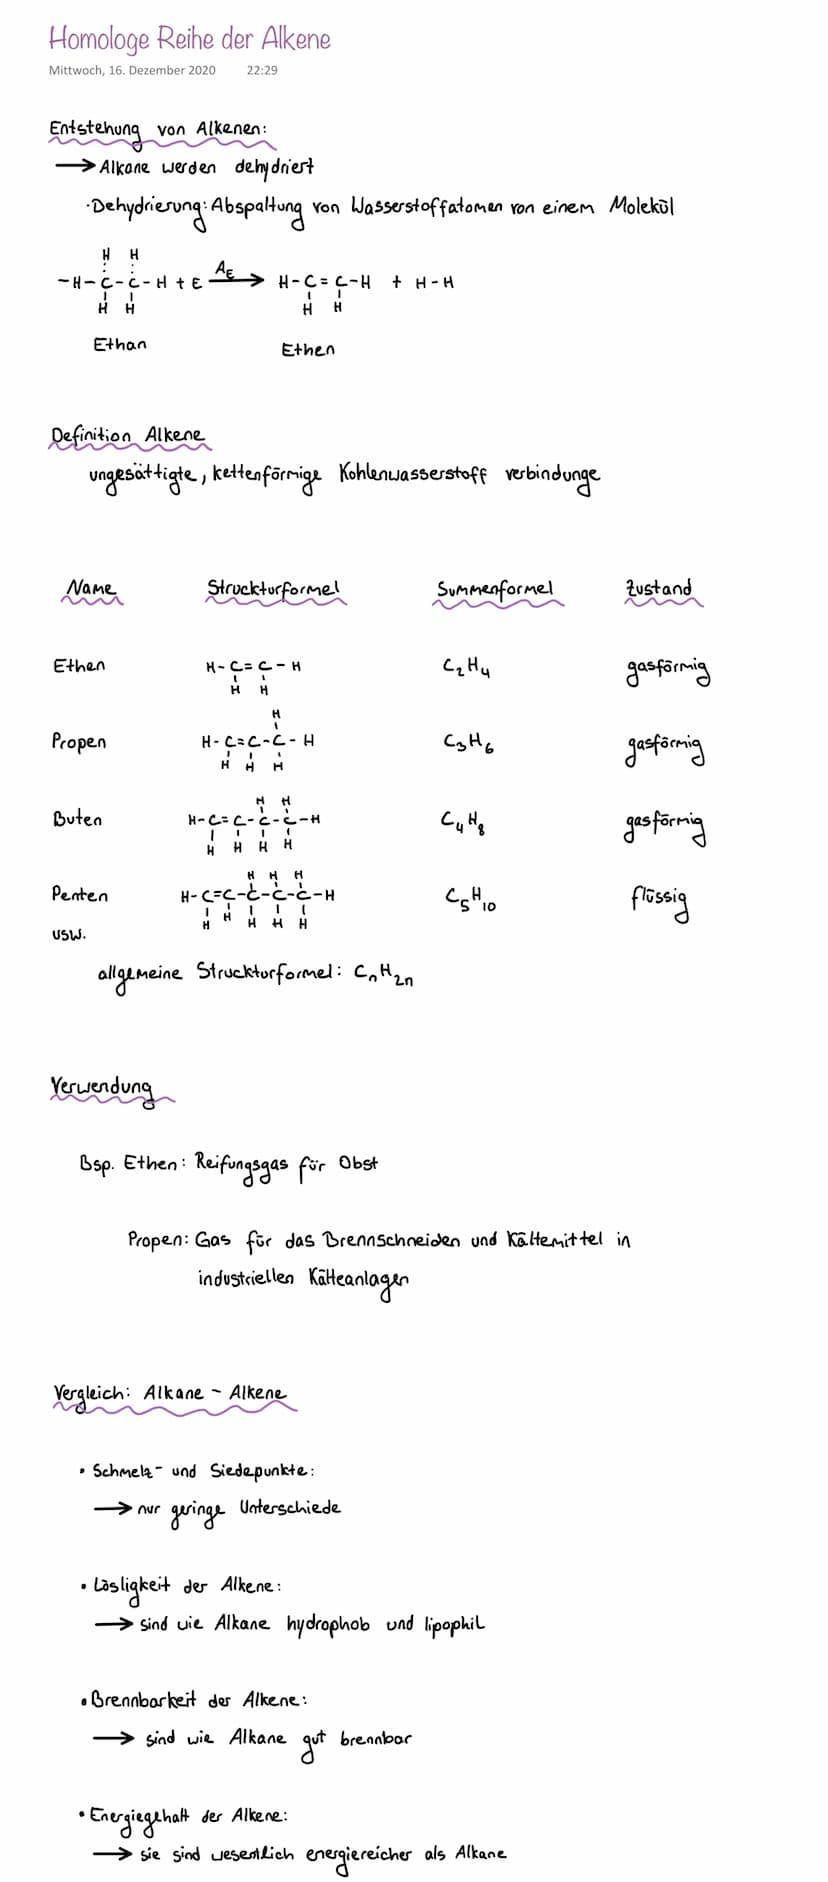 Homologe Reihe der Alkene
Mittwoch, 16. Dezember 2020 22:29
Entstehung von Alkenen:
→ Alkane werden dehydriert
·Dehydrierung: Abspaltung von Wasserstoffatomen von einem Molekül
H H
-H-C-C-H + E AE→ H-C=C-H + H-H
H H H H
Ethan Ethen
Definition Alkene
ungesättigte, kettenförmige Kohlenwasserstoff verbindunge
Name Struckturformel Summenformel Zustand
Ethen H-C=C-H C₂H₄ gasförmig
H H
H
Propen H-C=C-C-H C₃H₆ gasförmig
H H H
H H
Buten H-C=C-C-C-H C₄H₈ gasförmig
H H H H
H H H
Penten H-C=C-C-C-C-H C₅H₁₀ flüssig
H H H H H
usw.
allgemeine Struckturformel: CₙH₂ₙ
Verwendung
Bsp. Ethen: Reifungsgas für Obst
Propen: Gas für das Brennschneiden und Kältemittel in
industriellen Kälteanlagen
Vergleich: Alkane - Alkene
• Schmelz- und Siedepunkte:
→ nur geringe Unterschiede
• Lösligkeit der Alkene:
→ sind wie Alkane hydrophob und lipophil
• Brennbarkeit der Alkene:
→ sind wie Alkane gut brennbar
• Energiegehalt der Alkene:
→ sie sind wesentlich energiereicher als Alkane